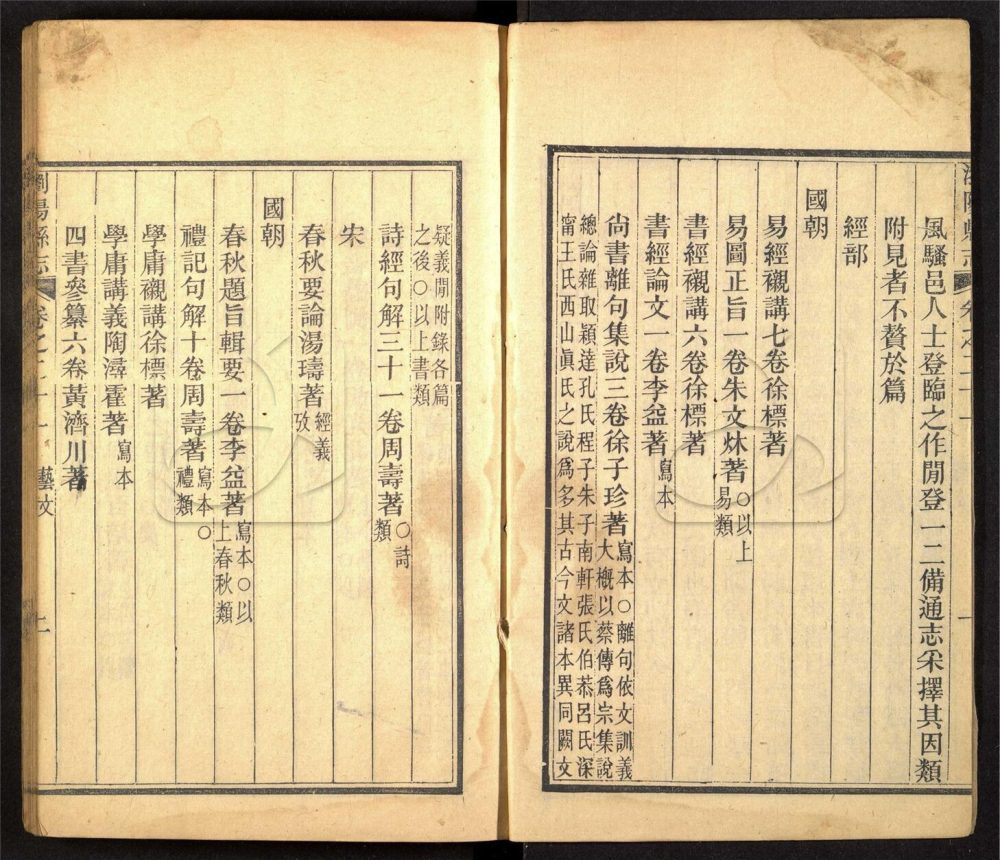 風騷邑人士登臨之作閒登一二備通志采擇其因類
附見者不贅於篇
經部
國朝
易經襯講七卷徐標著
易圖正旨一卷朱文炑著○以上
易類
書經襯講六卷徐標著
書經論文一卷李益著寫本
尙書離句集說三卷徐子珍著寫本○離句依文訓義
大槪以蔡傳爲宗集說
總論雜取穎達孔氏程子朱子南軒張氏伯恭呂氏深
甯王氏西山眞氏之說爲多其古今文諸本異同闕文
瀏陽縣志
卷之二十一
藝文
二
疑義閒附錄各篇
之後○以上書類
詩經句解三十一卷周壽著○詩
類
宋
春秋要論湯璹著經義
攷
國朝
春秋題旨輯要一卷李益著寫本○以
上春秋類
禮記句解十卷周壽著寫本○
禮類
學庸襯講徐標著
學庸講義陶潯霍著寫本
四書參纂六卷黃濟川著